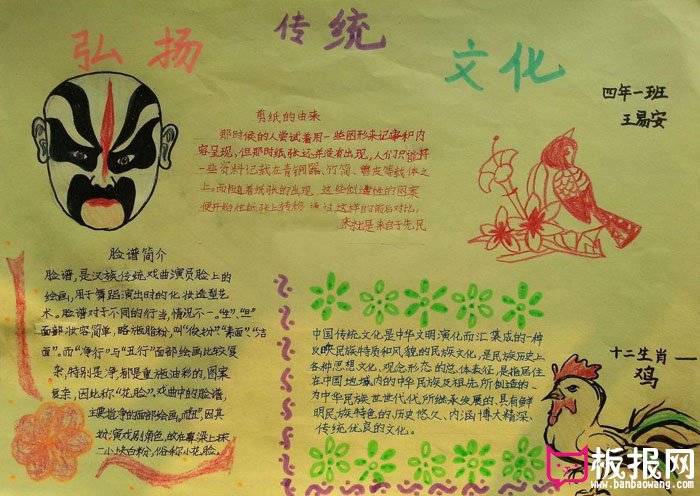 弘扬 传统 文化
四年一班
王易安
剪纸的由来
那时候的人尝试着用一些图形来记事和内
容呈现,但那时纸张还并没有出现,人们只能将
一些资料记载在青铜器、竹简、兽皮等载体之
上。而随着纸张的出现,这些创造性的图案
便开始在纸张上转移
来自于先民
脸谱简介
脸谱,是汉族传统戏曲演员脸上的
绘画,用于舞蹈演出时的化妆造型艺
术。脸谱对于不同的行当,情况不一。"生"、"旦"
面部妆容简单,略施脂粉,叫"俊扮"、"素面"、"洁
面"。而"净行"与"丑行"面部绘画比较复
杂,特别是净,都是重施油彩的,图案
复杂,因此称"花脸"。戏曲中的脸谱,
主要指净的面部绘画。而"丑",因其
扮演戏剧角色,故在鼻梁上抹
一小块白粉,俗称小花脸。
中国传统文化是中华文明演化而汇集成的一种
反映民族特质和风貌的民族文化,是民族历史上
各种思想文化、观念形态的总体表征,是指居住
在中国地域内的中华民族及祖先所创造的、
为中华民族世世代代所继承发展的,具有鲜
明民族特色的,历史悠久、内涵博大精深、
传统优良的文化。
十二生肖——
鸡
板报网
www.banbaowang.com